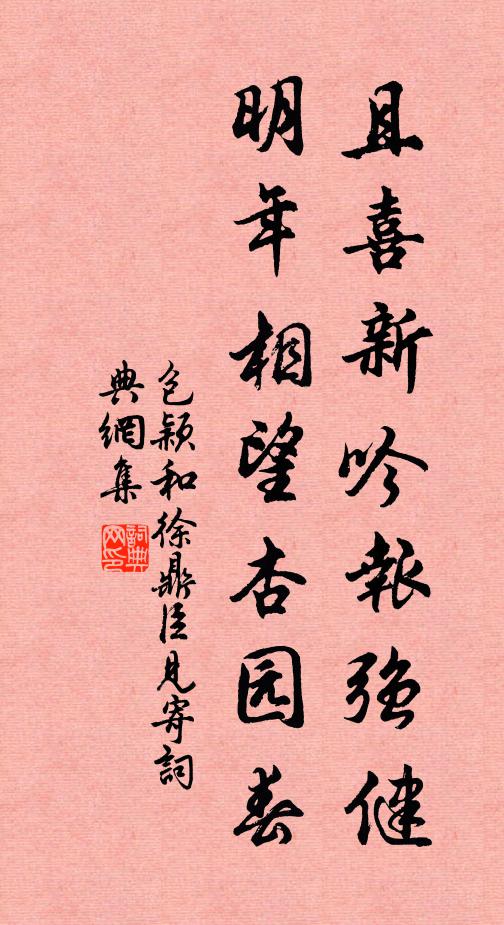 且喜新吟報強健
明年相望杏园春
包颖和徐鼎臣見寄詞
典網集
詞典网印